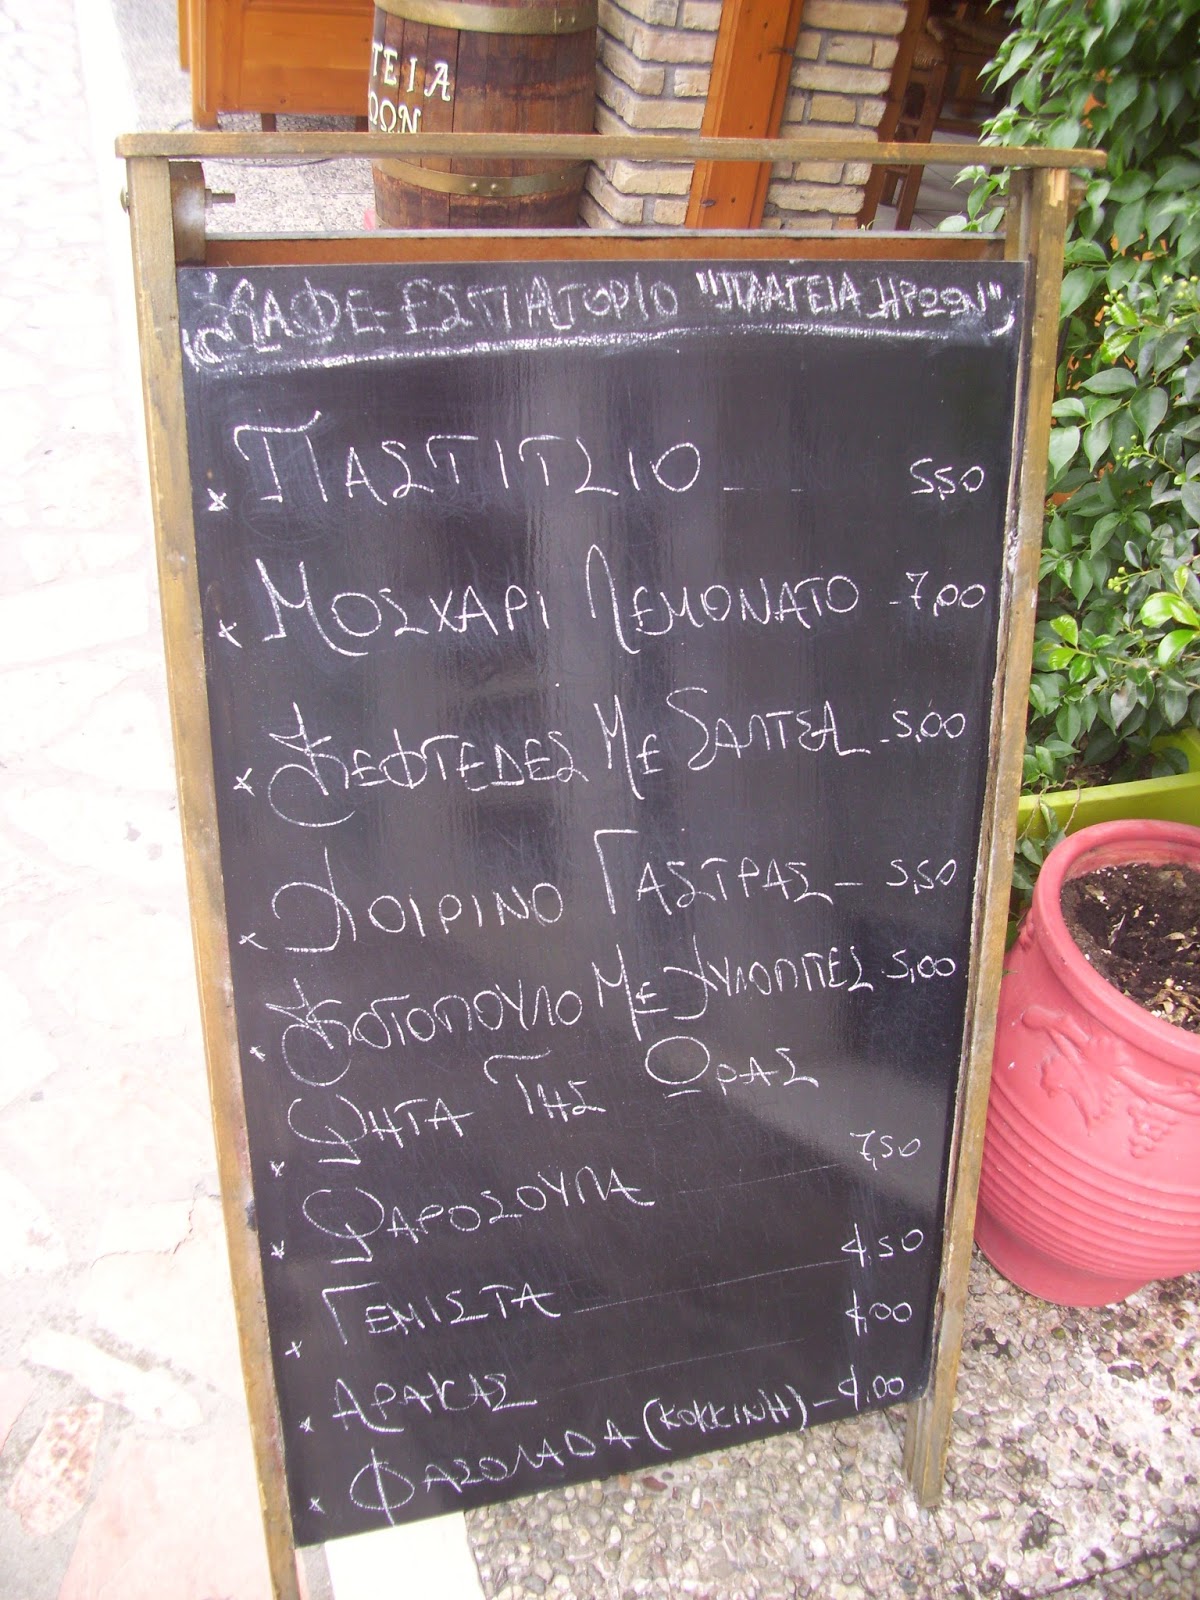 ΤΕΙΑ
ΩΩΝ
ΚΑΦΕ-ΕΣΤΙΑΤΟΡΙΟ "ΠΛΑΤΕΙΑ ΗΡΩΩΝ"
x ΠΑΣΤΙΤΣΙΟ _ _ 5,50
x ΜΟΣΧΑΡΙ ΛΕΜΟΝΑΤΟ - 7,00
x ΚΕΦΤΕΔΕΣ ΜΕ ΣΑΛΤΣΑ - 5,00
x ΧΟΙΡΙΝΟ ΓΑΣΤΡΑΣ - 5,50
x ΚΟΤΟΠΟΥΛΟ ΜΕ ΧΥΛΟΠΙΤΕΣ - 5,00
x ΨΗΤΑ ΤΗΣ ΩΡΑΣ
x ΨΑΡΟΣΟΥΠΑ ___ 7,50
x ΓΕΜΙΣΤΑ ___ 4,50
x ΑΡΑΚΑΣ ___ 4,00
x ΦΑΣΟΛΑΔΑ (ΚΟΚΚΙΝΗ) - 4,00